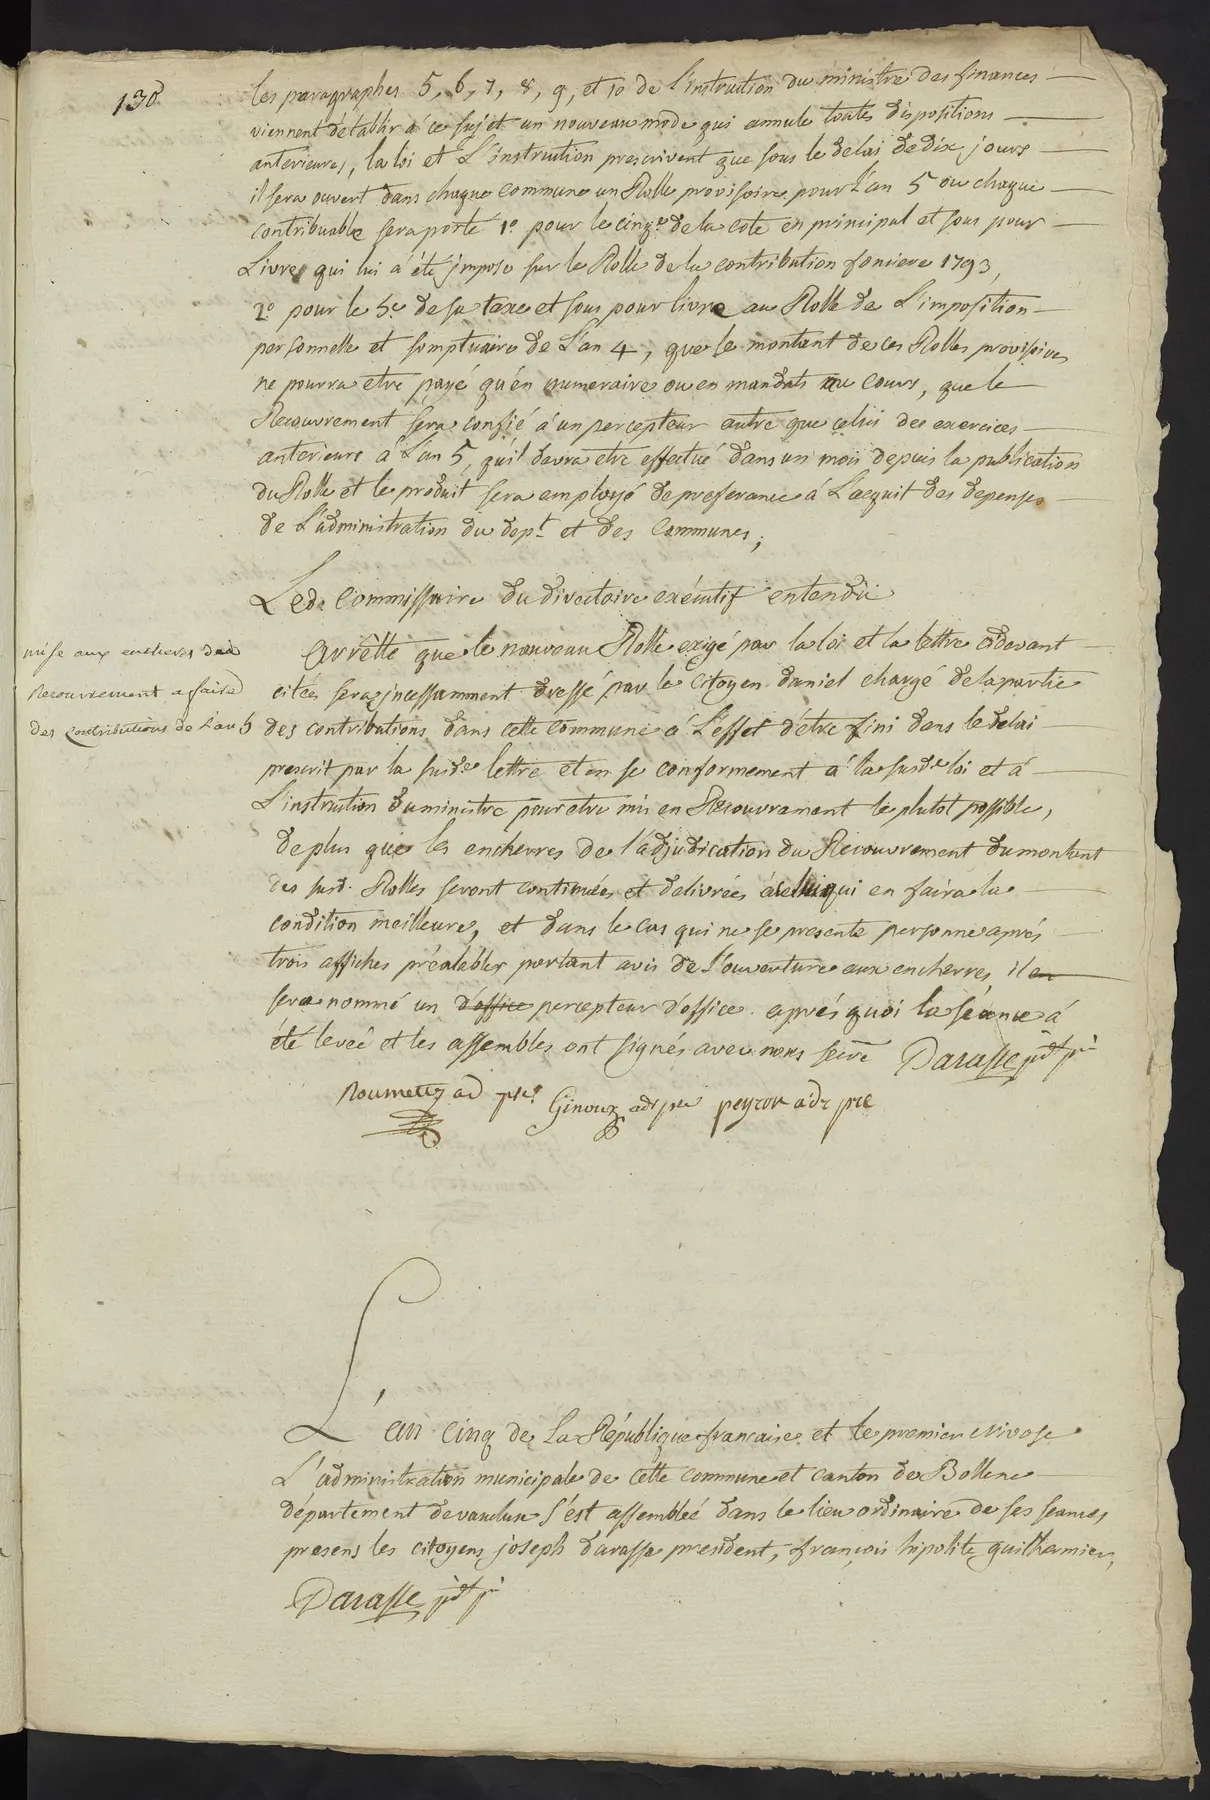 130
les paragraphes 5, 6, 7, 8, 9, et 10 de l'instruction du ministre des finances
viennent d'etablir a ce sujet un nouveau mode qui annule toutes dispositions
anterieures, la loi et L'instruction prescrivent que sous le delai de dix jours
il sera ouvert dans chaque commune un Rolle provisoire pour l'an 5 ou chaque
contribuable sera porté 1º pour le cinqe de la cote en principal et sous pour
Livre qui lui a été imposé sur le Rolle de la contribution fonciere 1793,
2º pour le 5e de sa taxe et sous pour livre au Rolle de L'imposition
personnelle et somptuaire de L'an 4, que le montant de ces Rolles provisoires
ne pourra etre payé qu'en numeraire ou en mandats au cours, que le
Recouvrement sera confié a un percepteur autre que celui des exercices
anterieurs a L'an 5, qu'il devra etre effectué dans un mois depuis la publication
du Rolle et le produit sera employé de preferance á L'acquit des depenses
de L'administration du dept et des communes;
Led. Commissaire du directoire exécutif entendu
Arrêtte que le nouveau Rolle exigé par la loi et la lettre cidevant
citées sera incessamment dressé par le citoyen daniel chargé de la partie
des contributions dans cette commune á L'effet d'etre fini dans le delai
prescrit par la susde lettre et en se conformement á la susde loi et á
L'instruction du ministre pour etre mis en Recouvrement le plutot possible,
de plus que les encherres de l'adjudication du Recouvrement du montant
des susd. Rolles seront continuées et delivrées á celui qui en faira la
condition meilleure, et dans le cas qui ne se presente personne aprés
trois affiches préalables portant avis de l'ouverture aux encherres, il en
sera nommé un d'office percepteur d'office. aprés quoi la séance á
été levée et les assembles ont signés avec nous secre Darasse pdt
mise aux encheres du
Recouvrement a faire
des contributions de l'an 5
Roumette ad Ginoux adr peyron adr
L'an cinq de la République francaise et le premier nivose
L'administration municipale de cette commune et canton de Bollene
département de vaucluse s'est assemblée dans le lieu ordinaire de ses seances
presens les citoyens joseph darasse president, françois hipolite guilhermier,
Darasse pdt